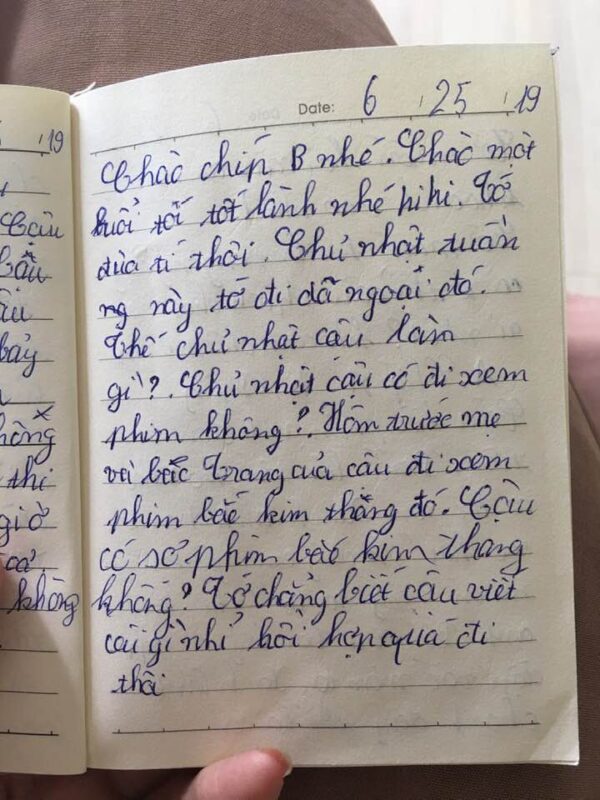 19
Date: 6 25 19
Chào chíp B nhé. Chào một
buổi tối tốt lành nhé hihi. Tớ
đùa tí thôi. Chủ nhật tuần
ng này tớ đi dã ngoại đó.
Thế chủ nhật cậu làm
gì?. Chủ nhật cậu có đi xem
phim không?. Hôm trước mẹ
và bác Trang của cậu đi xem
phim bắc kim thang đó. Cậu
có sợ phim bắc kim thang
không? Tớ chẳng biết cậu viết
cái gì nhỉ hồi hợp quá đi
thôi
cậu
bảy
thi
giờ
cả
không